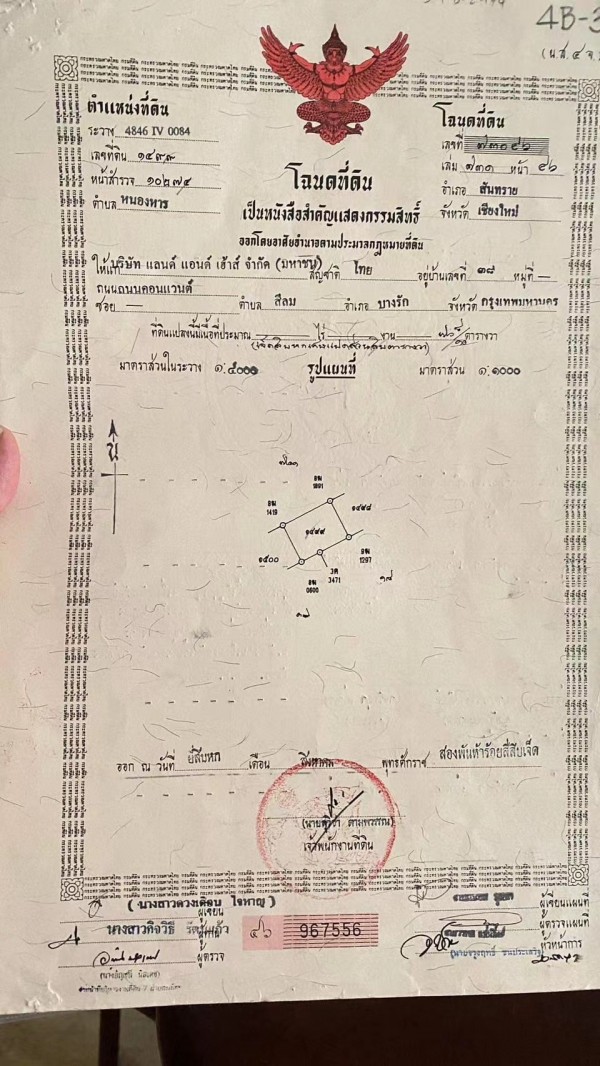 4B-3
(น.ส. ๔ จ.)
ตำแหน่งที่ดิน
ระวาง 4846 IV 0084
เลขที่ดิน ๑๔๙๙
หน้าสำรวจ ๑๐๒๗๔
ตำบล หนองหาร
โฉนดที่ดิน
เลขที่
เล่ม ๗๓๑ หน้า ๔๖
อำเภอ สันทราย
จังหวัด เชียงใหม่
โฉนดที่ดิน
เป็นหนังสือสำคัญแสดงกรรมสิทธิ์
ออกโดยอาศัยอำนาจตามประมวลกฎหมายที่ดิน
ให้แก่ บริษัท แลนด์ แอนด์ เฮ้าส์ จำกัด (มหาชน) สัญชาติ ไทย อยู่บ้านเลขที่ ๓๘ หมู่ที่ —
ถนน ถนนคอนแวนต์
ซอย — ตำบล สีลม อำเภอ บางรัก จังหวัด กรุงเทพมหานคร
ที่ดินแปลงนี้มีเนื้อที่ประมาณ ไร่ งาน ตารางวา
มาตราส่วนในระวาง ๑:๕๐๐๐ รูปแผนที่ มาตราส่วน ๑:๑๐๐๐
น
อฆ
1891
อฆ
1419
๑๔๙๘
๑๔๙๙
๑๕๐๐
อฆ
1297
3ค
3471
อฆ
0600
ออก ณ วันที่ ยี่สิบหก เดือน สิงหาคม พุทธศักราช สองพันห้าร้อยสี่สิบเจ็ด
เจ้าพนักงานที่ดิน
(นางสาวดวงเดือน ใจหาญ)
ผู้เขียน
นางสาวกิจวิธี
ผู้ตรวจ
๔๖ 967556
ผู้เขียนแผนที่
ผู้ตรวจแผนที่
หัวหน้าการ